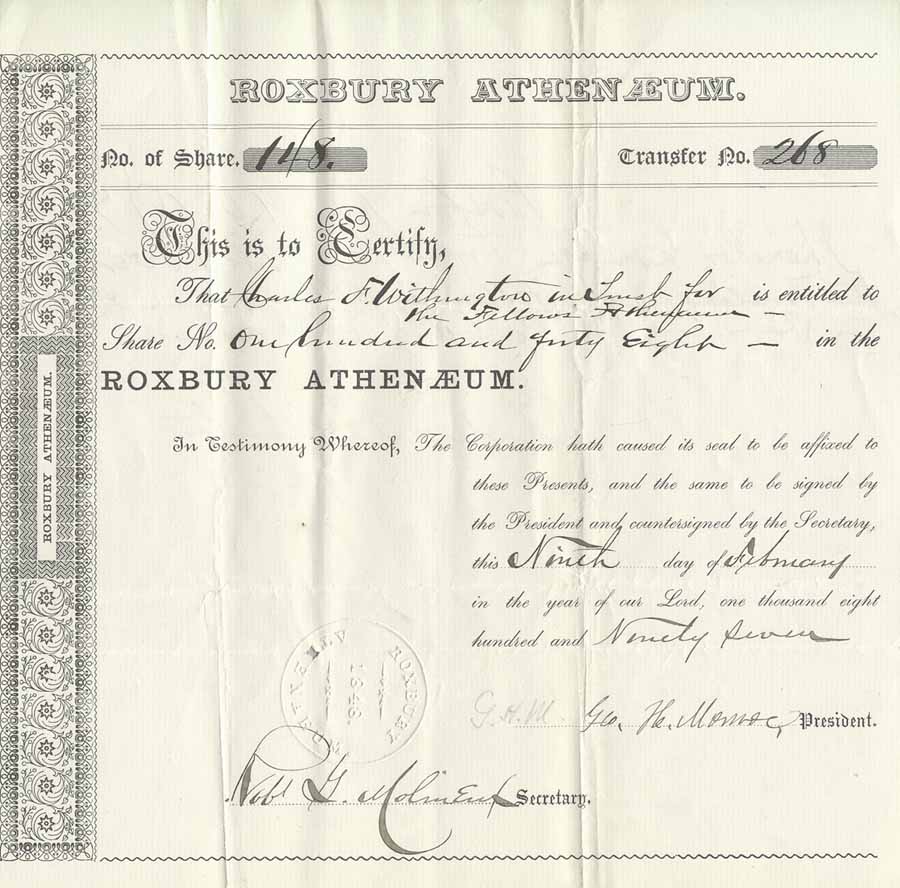 ROXBURY ATHENÆUM.
No. of Share. 148. Transfer No. 268
This is to Certify,
That Charles F. Withington in Trust for is entitled to
the Fellows Athenaeum —
Share No. One hundred and forty Eight — in the
ROXBURY ATHENÆUM.
ROXBURY ATHENÆUM.
In Testimony Whereof, The Corporation hath caused its seal to be affixed to
these Presents, and the same to be signed by
the President and countersigned by the Secretary,
this Ninth day of February
in the year of our Lord, one thousand eight
hundred and Ninety Seven
ROXBURY ATHENÆUM
1848.
G.H.M. Geo. H. Monroe, President.
Robt G. Secretary.